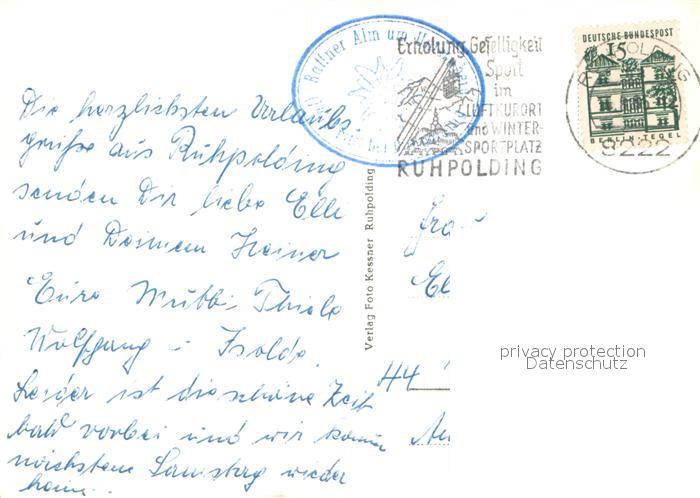 Die herzlichsten Urlaubs
grüße aus Ruhpolding
senden Dir liebe Elle
und Deinem Heiner
Eure Mutti Thiele
Wolfgang - Isolde.
Leider ist die schöne Zeit
bald vorbei und wir kommen
nächsten Samstag wieder
heim.
Rattner Alm um
Erholung, Geselligkeit
Sport
im
LUFTKURORT
und WINTER-
SPORTPLATZ
RUHPOLDING
DEUTSCHE BUNDESPOST
15
BERLIN-TEGEL
8222
Verlag Foto Kessner Ruhpolding
El
44
privacy protection
Datenschutz